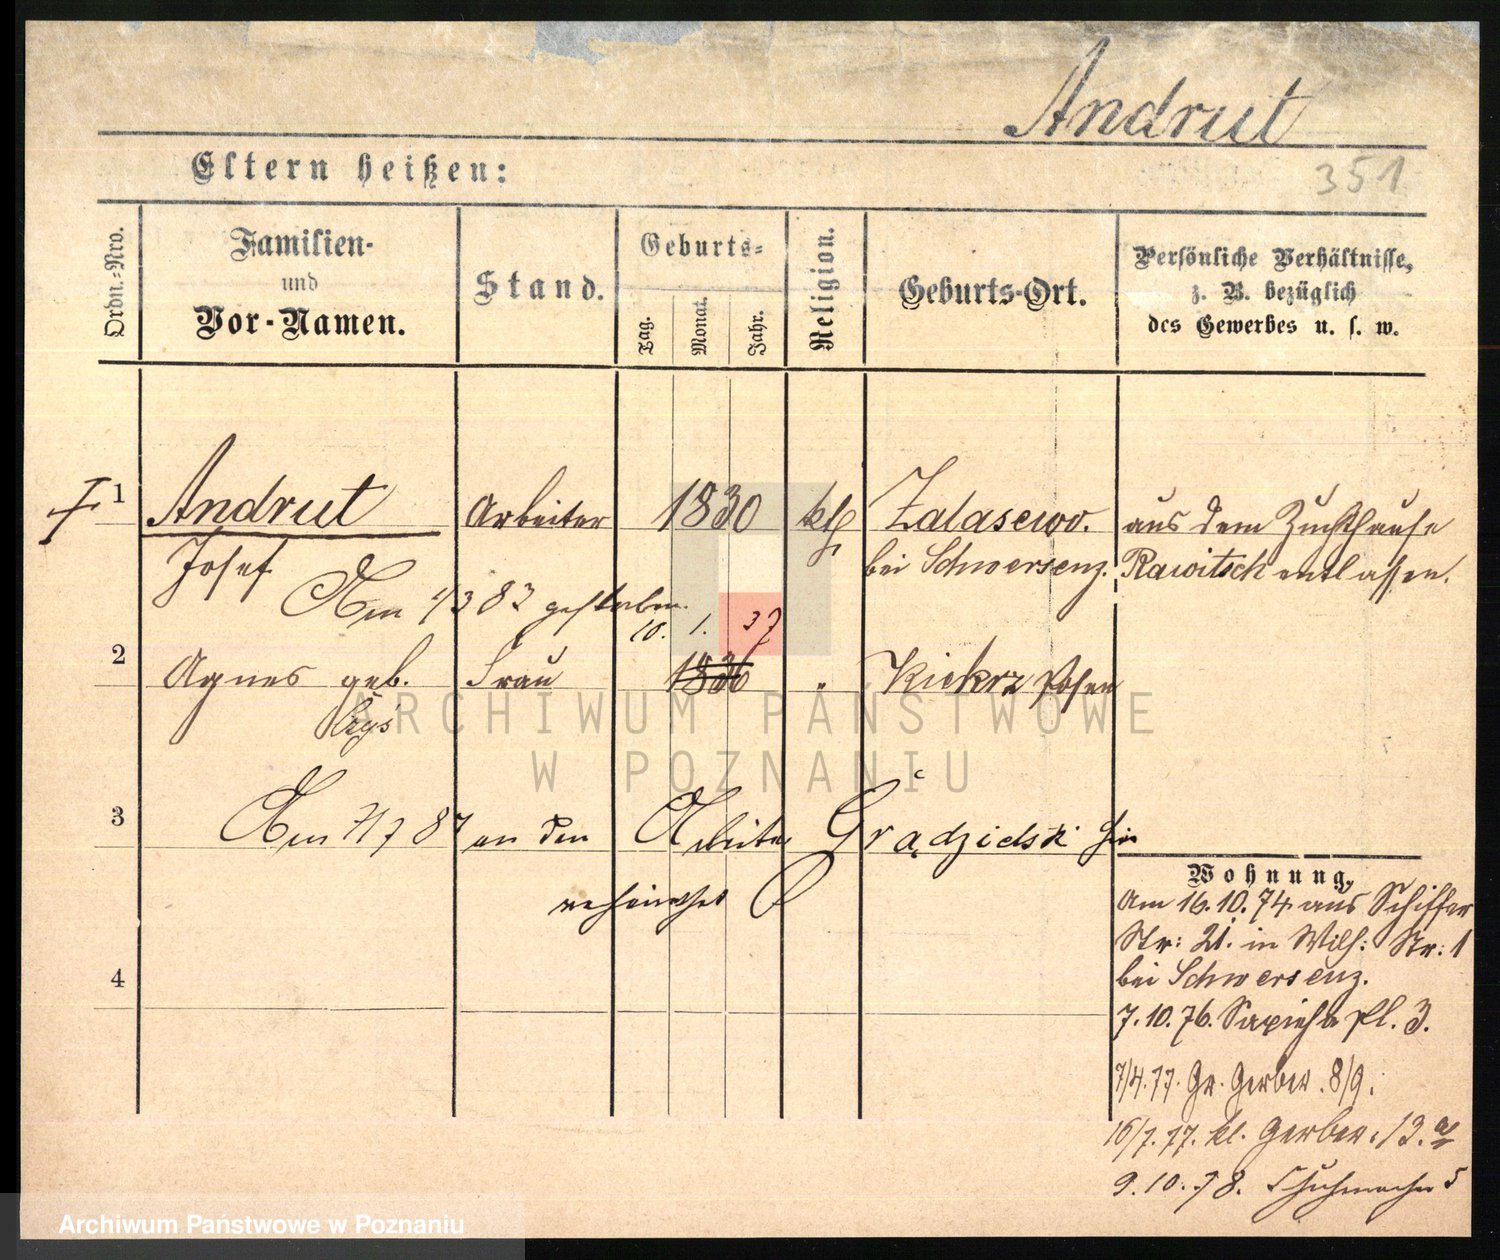 Andrut
351
Eltern heißen:
Ordn.-Nro.
Familien-
und
Vor-Namen.
Stand.
Geburts-
Tag.
Monat.
Jahr.
Religion.
Geburts-Ort.
Persönliche Verhältnisse,
z. B. bezüglich
des Gewerbes u. s. w.
1 Andrut Arbeiter 1830 kth Zalasewo. aus dem Zuchthause
Josef bei Schwersenz. Rawitsch entlassen.
Am 4/3 83 gestorben.
10. 1. 37
2 Agnes geb. Frau 1836 " Kiekrz Posen
ARCHIWUM PAŃSTWOWE
W POZNANIU
3 Am 7 87 an den Arbeiter Grądzielski hier
verheirathet
Wohnung.
Am 16.10.74 aus Schiffer
Str: 21. in Wilh: Str: 1
bei Schwersenz.
7.10.76. Sapieha Pl. 3.
7/4.77. Gr. Gerber. 8/9.
4
16/7.77. kl. Gerber. 13.a
9.10.78. Schuhmacher 5
Archiwum Państwowe w Poznaniu